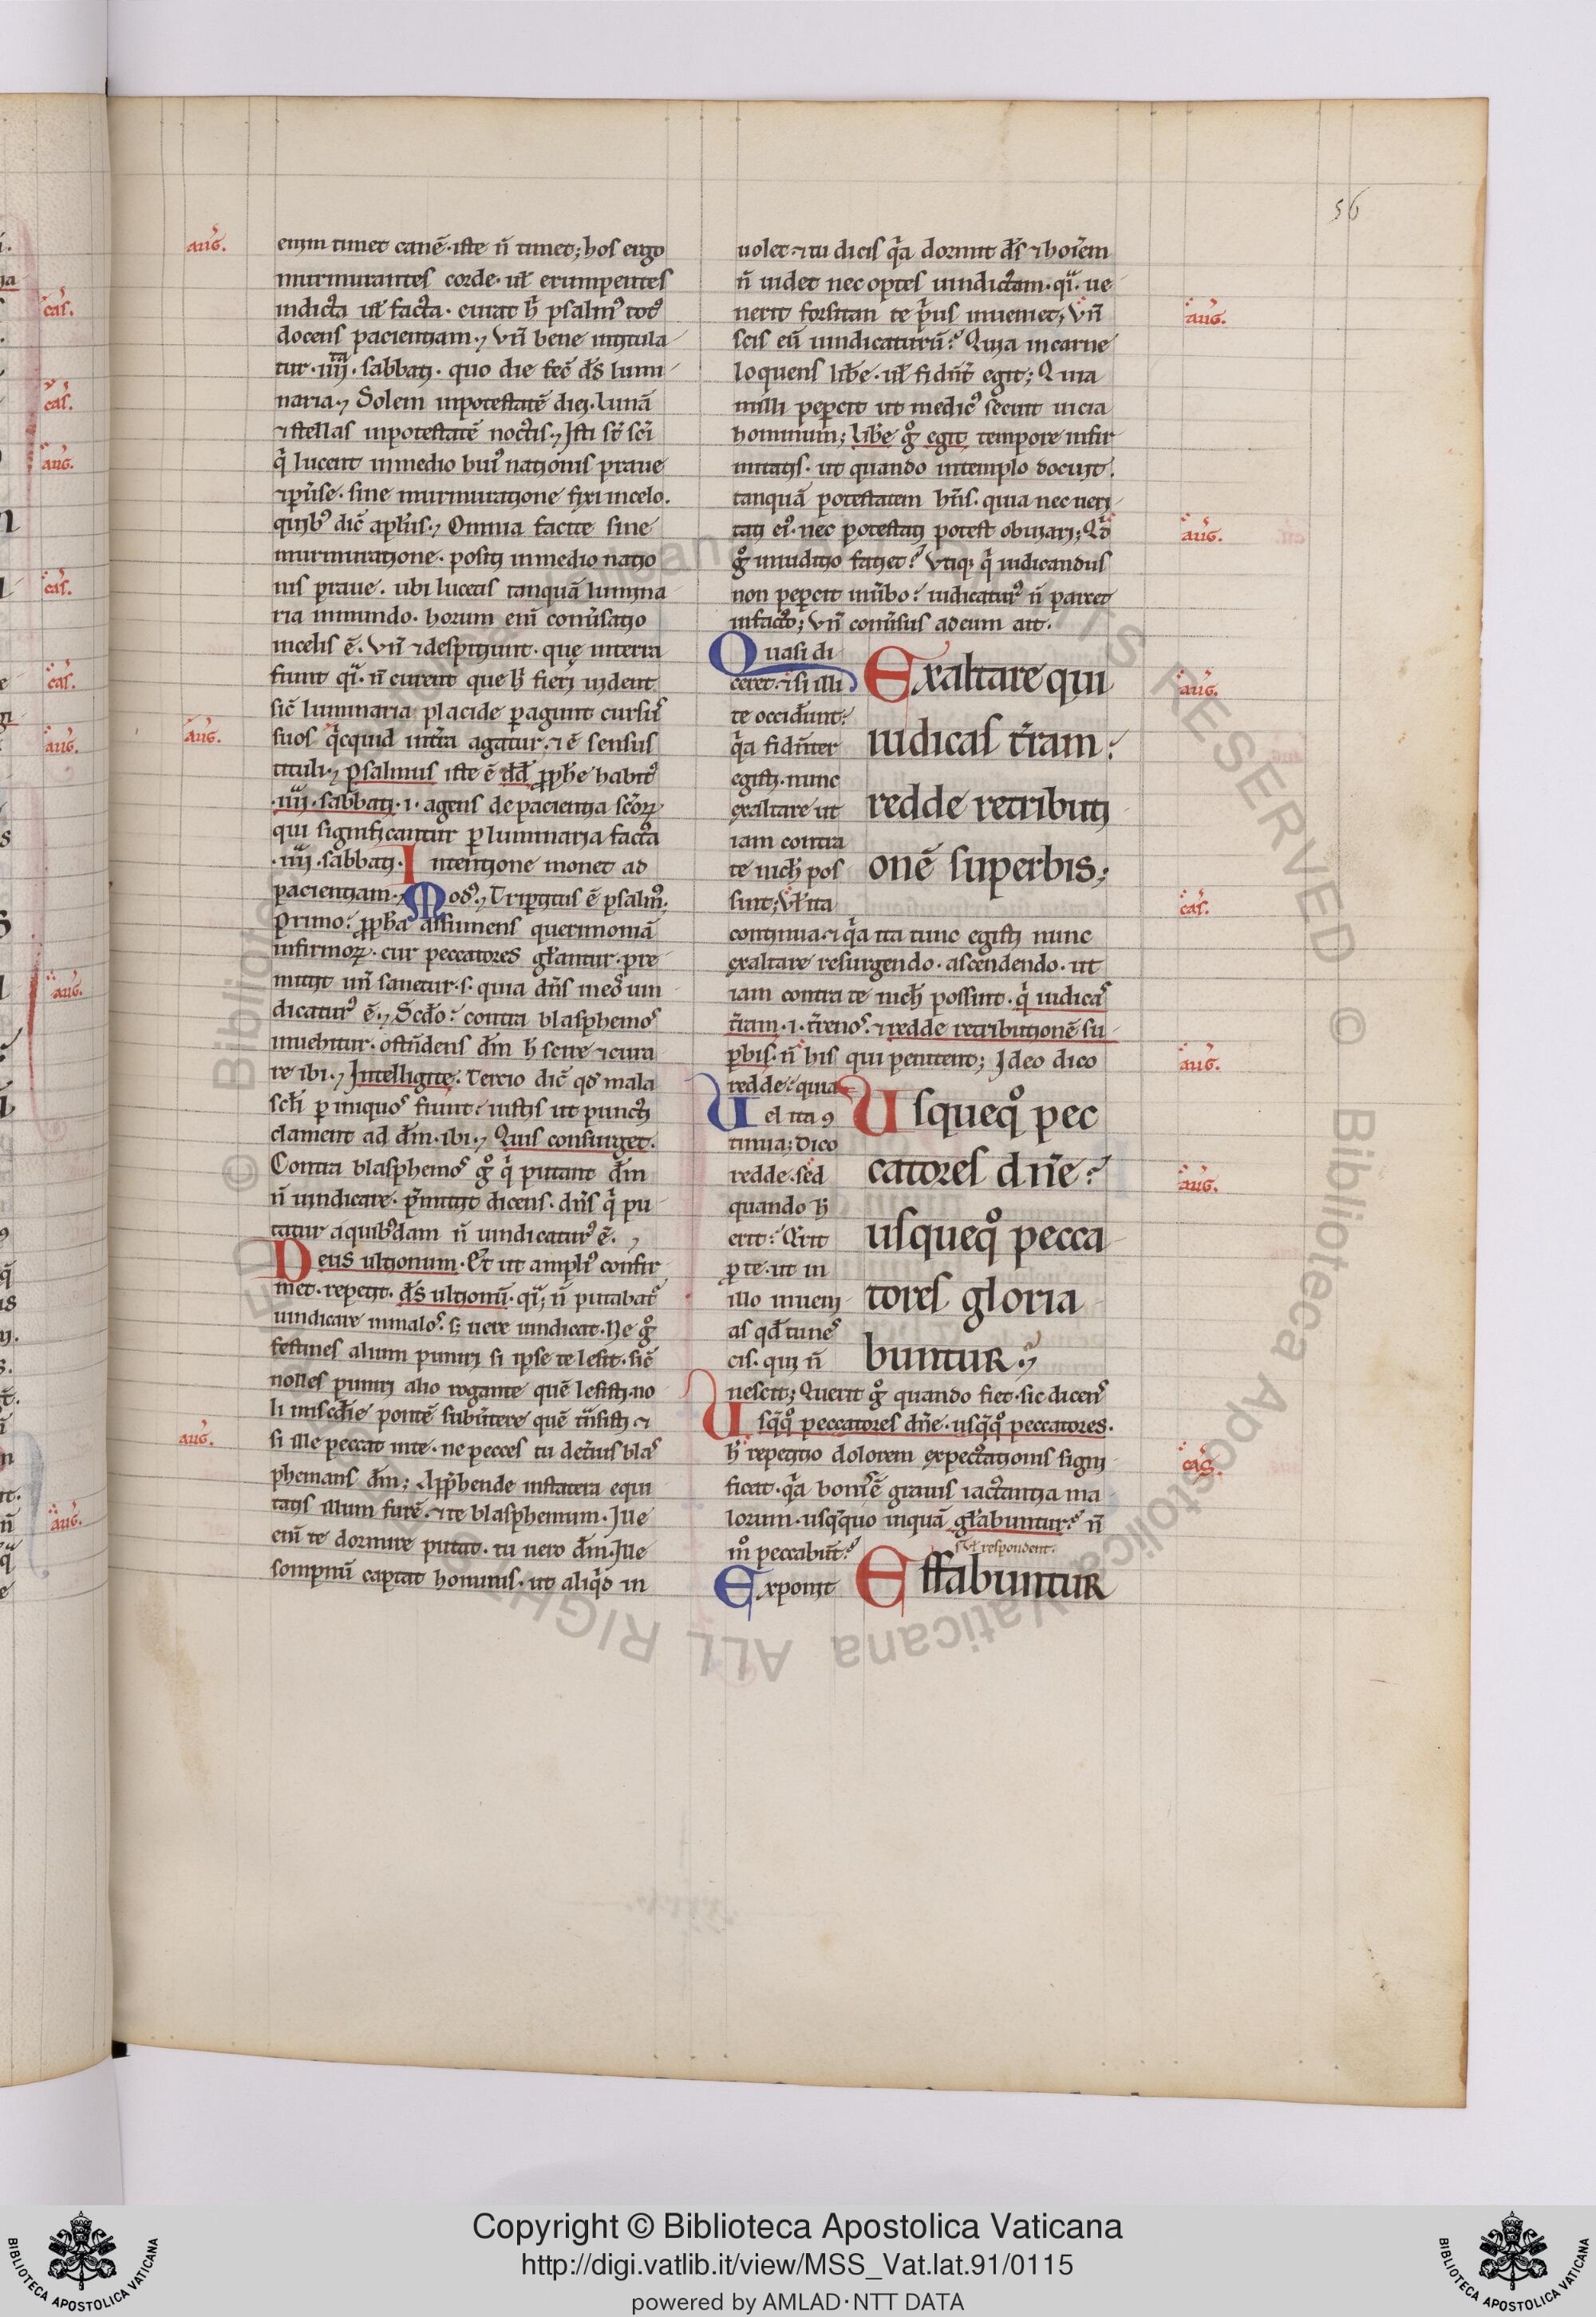 56
aug̃.
enim timet canē· iste ñ timet; hos ergo
murmurantes corde· uł erumpentes
indicta uł facta· curat h̄ psalm᷒ tot᷒
docens pacientiam·, Vñ bene intitula
tur ·iiij^ta· sabbati· quo die fec̄ ds̄ lumi
naria·, Solem inpotestatē diei· lunā
⁊stellas inpotestatē noctis·, Isti st̄ sc̄i
q̇ lucent inmedio hui᷒ nationis praue
sine murmuratione fixi incelo.
quib᷒ dic̄ apłus·, Omnia facite sine
murmuratione· positi inmedio natio
nis praue· ubi lucetis tanquā lumina
ria inmundo· horum eni᷑ conu̾satio
incelis ē· Vñ ⁊despiciunt· quę interra
fiunt qi᷒· ñ curent que h̄ fieri uident
sic̄ luminaria placide ꝑagunt cursus
aug̃.
suos q̇cquid int̾ra agatur· ⁊ē sensus
tituli·, psalmus iste ē dd̄ ꝓph̄e habit᷒
·iiij· sabbati· i· agens depacientia sc̄oꝝ
qui significantur ꝑ luminaria facta
·iiij· sabbati· Intentione monet ad
pacientiam·, Mod᷒·, Tripitus ē psalm᷒;
Primo: ꝓph̄a assumens querimoniā
infirmoꝝ· cur peccatores głantur· pre
mittit un̄ sanetur· s· quia dn̄s meo᷒ uin
dicatur᷒ ē·, Scd̄o: contra blasphemos
inuehitur· ostn̄dens dm̄ h̄ scire ⁊cura
re ibi·, Intelligite· Tercio dic̄ qd̄ mala
scłi ꝑ iniquos fiunt: iustis ut puncti
clament ad dm̄· ibi·, Quis consurget·
Contra blasphemos g̊ q̇ putant dm̄
ñ uindicare· p̄mittit dicens· dn̄s q̇ pu
tatur aquib᷒dam ñ uindicatur᷒ ē·,
Deus ultionum· Et ut ampli᷒ confir
met· repetit· ds̄ ultionū· qi᷒; ñ putabat᷑
uindicare inmalos· s; uere uindicat· Ne g̊
festines alium puniri si ipse te lesit· sic̄
nolles puniri alio rogante quē lesisti· no
li mis̄cd̄ie pontē subu̾tere quē tn̄sisti· ⁊
aug̃.
si ille peccat inte· ne pecces tu deterius blas
phemans dm̄; App̄hende instatera equi
tatis illum furē· ⁊te blasphemum· Ille
eni᷑ te dormire putat· tu uero dm̄· Ille
sompnū captat hominis· ut aliq̇d in
uolet· ⁊tu dicis q̇a dormit ds̄ ⁊hoīem
ñ uidet nec optes uindictam· qi᷒· ue
aug̃.
nerit forsitan te ṗus inueniet; Vñ
scis eū uindicaturū? Quia incarne
loquens lib̄e· uł fidūt̾ egit; Quia
nulli pepercit ut medic᷒ secuit uicia
hominum; lib̄e g̊ egit tempore infir
mitatis· ut quando intemplo docuit·
tanquā potestatem hn̄s· quia nec ueri
aug̃.
tati ei᷒· nec potestati potest obuiari; Qd̄
g̊ iniuditio faciet? Vtiq; q̇ iudicandus
non pepercit inu̾bo? iudicatur᷒ ñ parcet
infacto; Vñ conu̾sus adeum ait·
Quasi di
ceret· ⁊si illi
te occidunt?
q̇a fidn̄ter
egisti· nunc
exaltare ut
iam contra
te nich̄ pos
sint; Vł ita
aug̃.
Exaltare qui
iudicas t̄ram:
redde retributi
onē superbis;
cas̃.
continua· ⁊q̇a ita tunc egisti nunc
exaltare resurgendo· ascendendo· ut
iam contra te nich̄ possint· q̇ iudicas
t̄ram· i· t̄renos· ⁊redde retributionē su
aug̃.
ꝑbis· ñ his qui penitent; Ideo dico
redde: quia
Uel ita 9
tinua; Dico
redde· sed
quando h̄
erit? Erit
ꝑ te· ut in
illo inueni
as qd̄ tunc
cis· qui ñ
Usqueq̊ pec
catores dn̄e?
aug̃.
usqueq̊ pecca
tores gloria
buntur·,
nescit; Querit g̊ quando fiet· sic dicens
Usq̇q̊ peccatores dn̄e· usq̇q̊ peccatores·
cas̃.
h̄ repetitio dolorem expectationis signi
ficat· q̇a bonis ē grauis iactantia ma
lorum· usq̇quo inquā głabuntur? ñ
m̊ peccabūt?
sc̄i respondent·
Exponit
Effabuntur
Copyright © Biblioteca Apostolica Vaticana
http://digi.vatlib.it/view/MSS_Vat.lat.91/0115
powered by AMLAD·NTT DATA
BIBLIOTECA APOSTOLICA VATICANA
BIBLIOTECA APOSTOLICA VATICANA
© Biblioteca Apostolica Vaticana ALL RIGHTS RESERVED